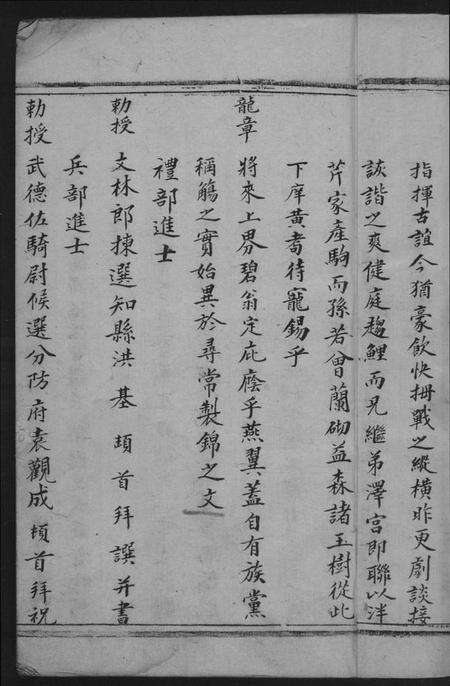 指揮古誼今猶豪飲快拇戰之縱橫昨更劇談接
詼諧之爽健庭趨鯉而兄繼弟澤宮即聯以泮
芹家產駒而孫若曾蘭砌益森諸玉樹從此
下庠黃耇待寵錫乎
龍章
將來上界碧翁定庇廕乎燕翼蓋自有族黨
稱觴之實始異於尋常製錦之文
禮部進士
勅授 文林郎揀選知縣洪基頓首拜譔并書
兵部進士
勅授 武德佐騎尉候選分防府袁觀成頓首拜祝